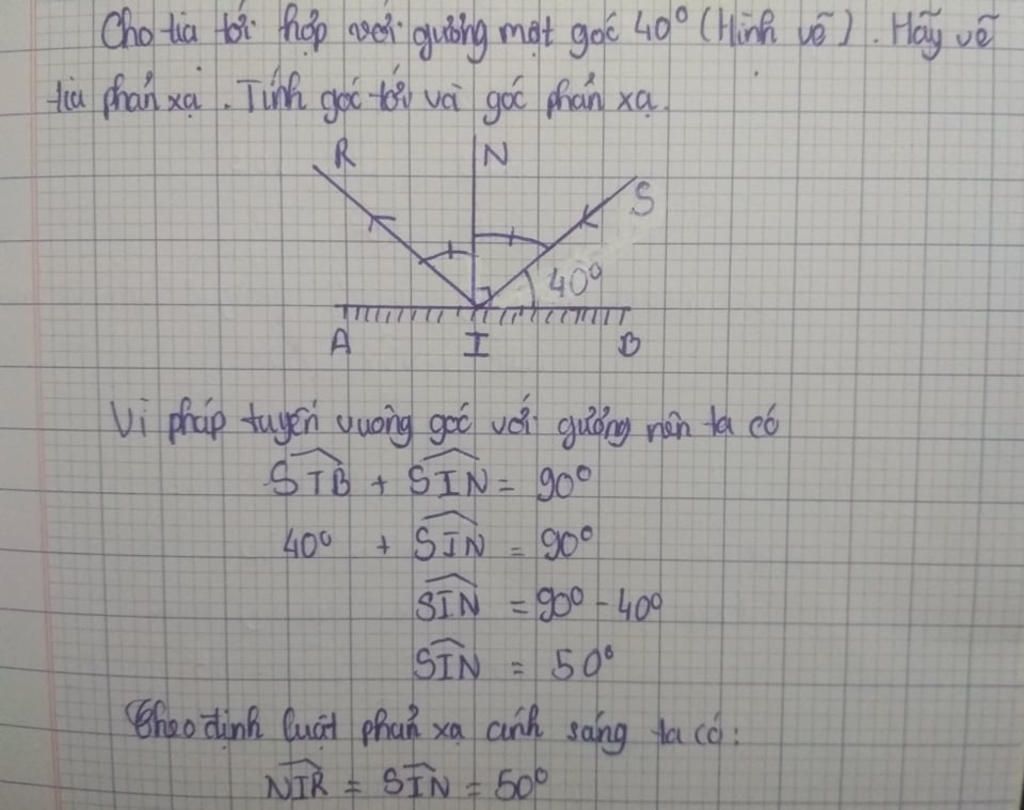 Cho tia tới hợp với gương một góc 40° (Hình vẽ). Hãy vẽ
tia phản xạ. Tính góc tới và góc phản xạ.
R N
S
40°
A I B
Vì pháp tuyến vuông góc với gương nên ta có
SIB + SIN = 90°
40° + SIN = 90°
SIN = 90° - 40°
SIN = 50°
Theo định luật phản xạ ánh sáng ta có:
NIR = SIN = 50°